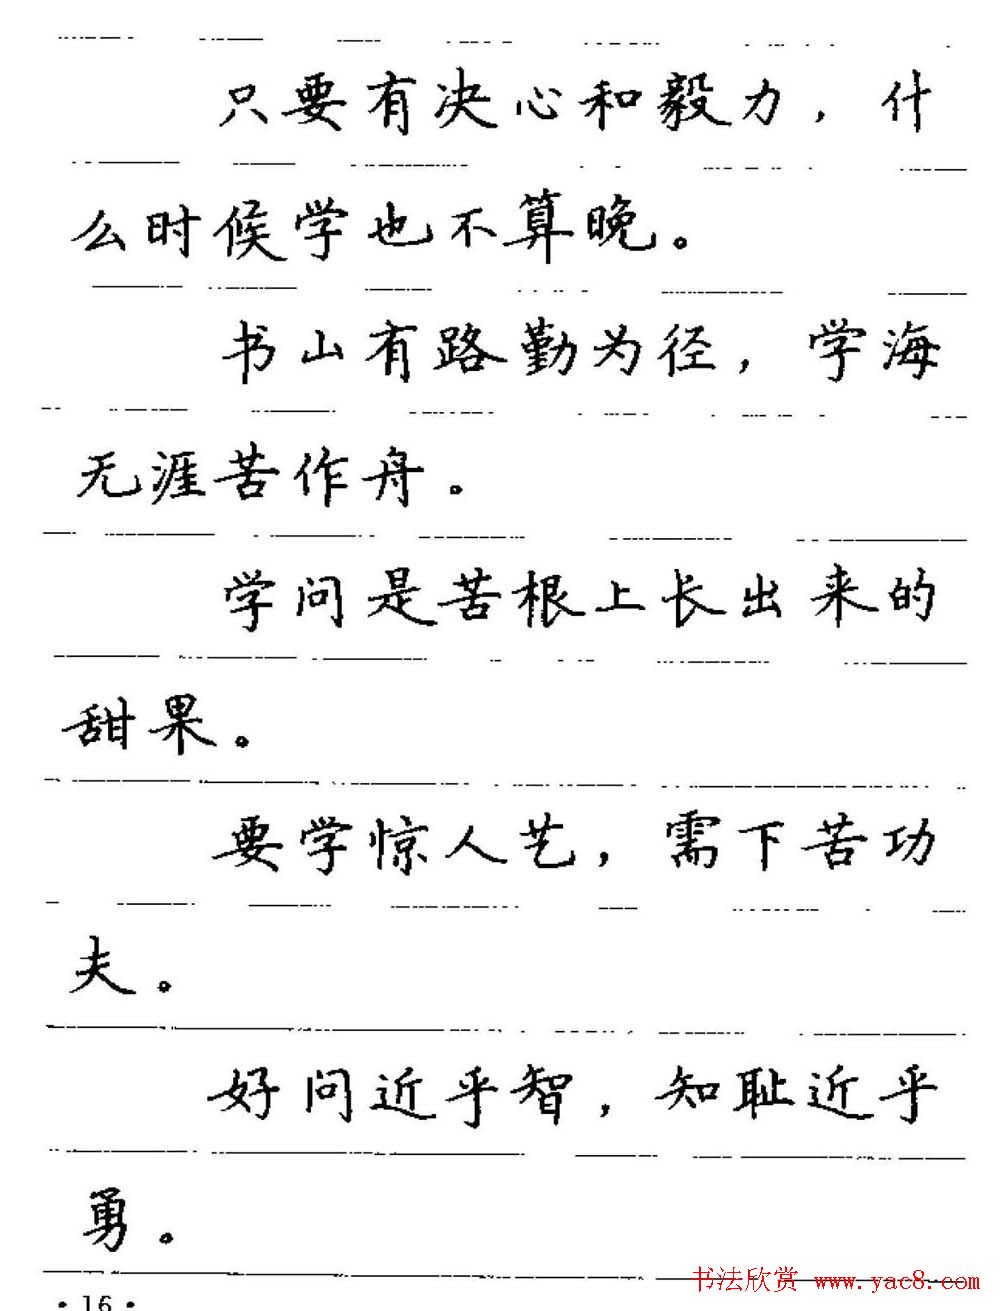 只要有决心和毅力，什
么时候学也不算晚。
书山有路勤为径，学海
无涯苦作舟。
学问是苦根上长出来的
甜果。
要学惊人艺，需下苦功
夫。
好问近乎智，知耻近乎
勇。
书法欣赏 www.yac8.com
·16·